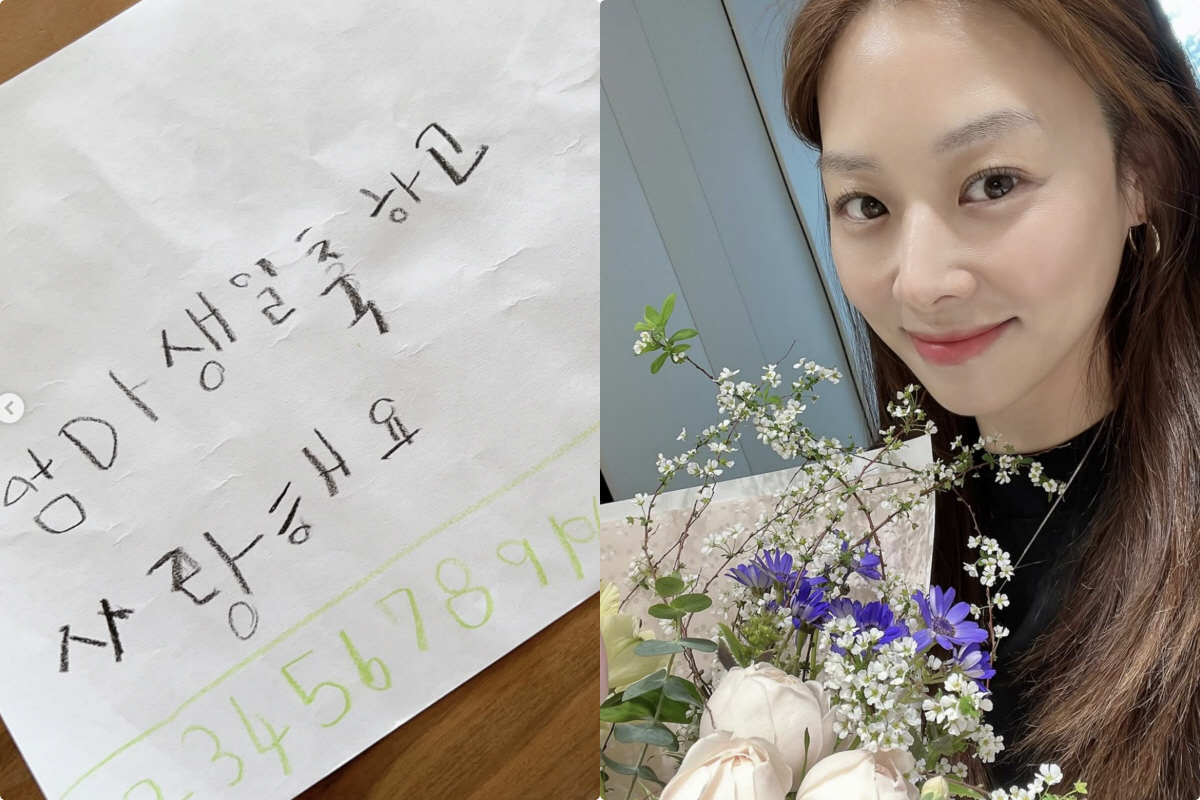 엄마 생일축 하고
사랑해요
2345678910